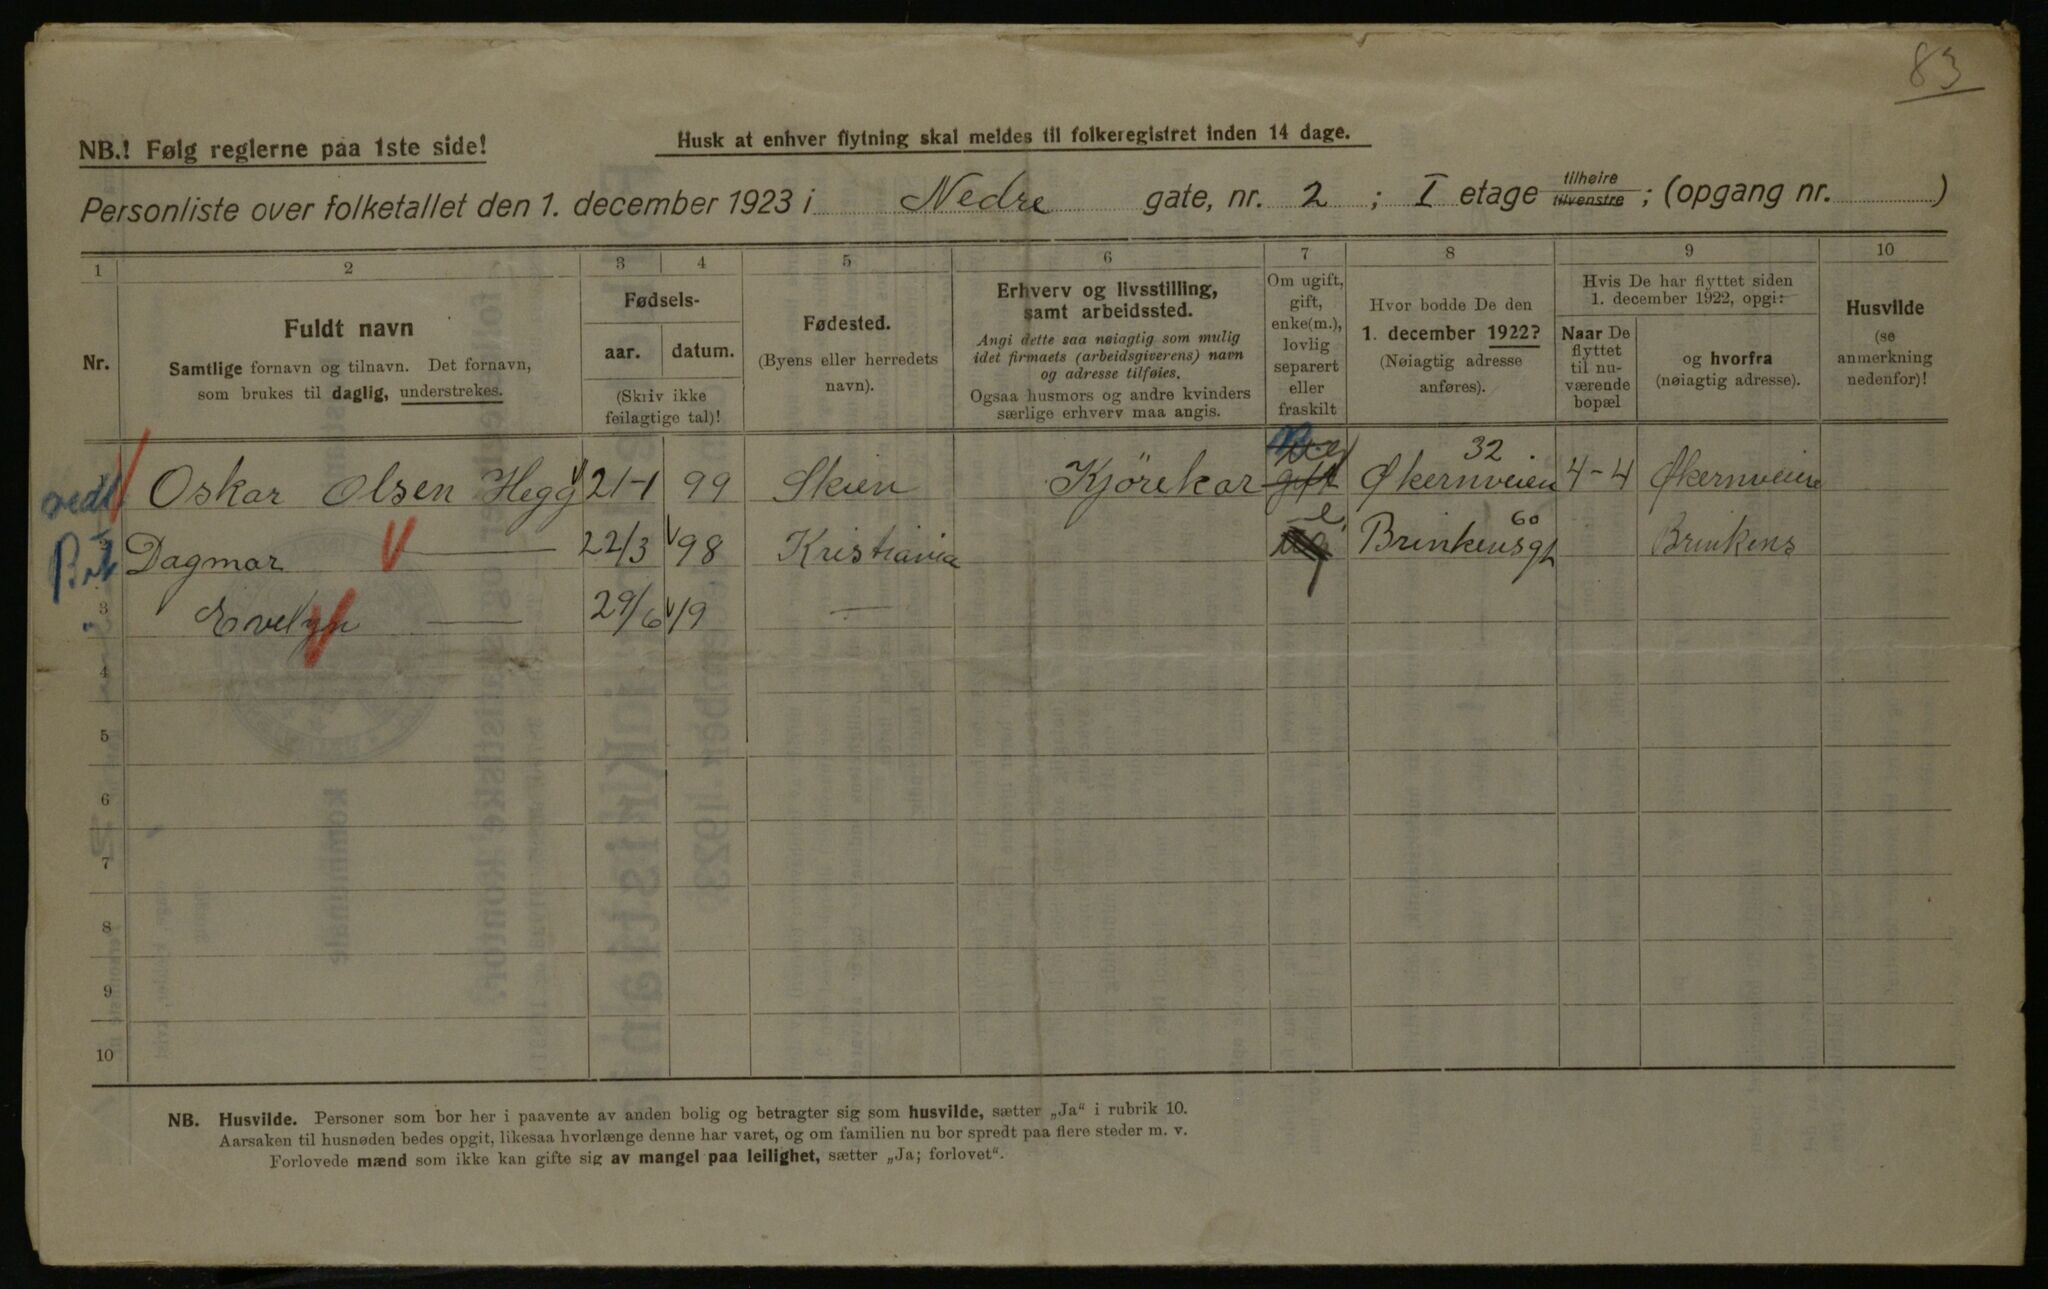 83
NB.! Følg reglerne paa 1ste side!
Husk at enhver flytning skal meldes til folkeregistret inden 14 dage.
Personliste over folketallet den 1. december 1923 i Nedre gate, nr. 2 ; I etage tilhøire tilvenstre ; (opgang nr. )
1 2 3 4 5 6 7 8 9 10
Nr.
Fuldt navn
Samtlige fornavn og tilnavn. Det fornavn,
som brukes til daglig, understrekes.
Fødsels-
aar. datum.
(Skriv ikke
feilagtige tal)!
Fødested.
(Byens eller herredets
navn).
Erhverv og livsstilling,
samt arbeidssted.
Angi dette saa nøiagtig som mulig
idet firmaets (arbeidsgiverens) navn
og adresse tilføies.
Ogsaa husmors og andre kvinders
særlige erhverv maa angis.
Om ugift,
gift,
enke(m.),
lovlig
separert
eller
fraskilt
Hvor bodde De den
1. december 1922?
(Nøiagtig adresse
anføres).
Hvis De har flyttet siden
1. december 1922, opgi:
Naar De
flyttet
til nu-
værende
bopæl
og hvorfra
(nøiagtig adresse).
Husvilde
(se
anmerkning
nedenfor)!
Oskar Olsen Hegg 21-1 99 Skien Kjörekar gift Økernveien 32 4-4 Økernveien
2 Dagmar — 22/3 98 Kristiania Brinkensgt 60 Brinkens
3 Evelyn — 29/6 19 —
4
5
6
7
8
9
10
NB. Husvilde. Personer som bor her i paavente av anden bolig og betragter sig som husvilde, sætter „Ja“ i rubrik 10.
Aarsaken til husnøden bedes opgit, likesaa hvorlænge denne har varet, og om familien nu bor spredt paa flere steder m. v.
Forlovede mænd som ikke kan gifte sig av mangel paa leilighet, sætter „Ja; forlovet“.